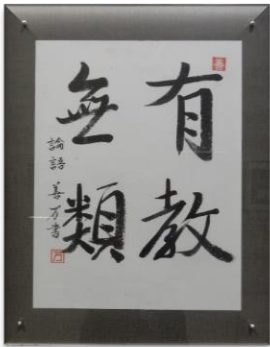 有教
無類
論語 善方書